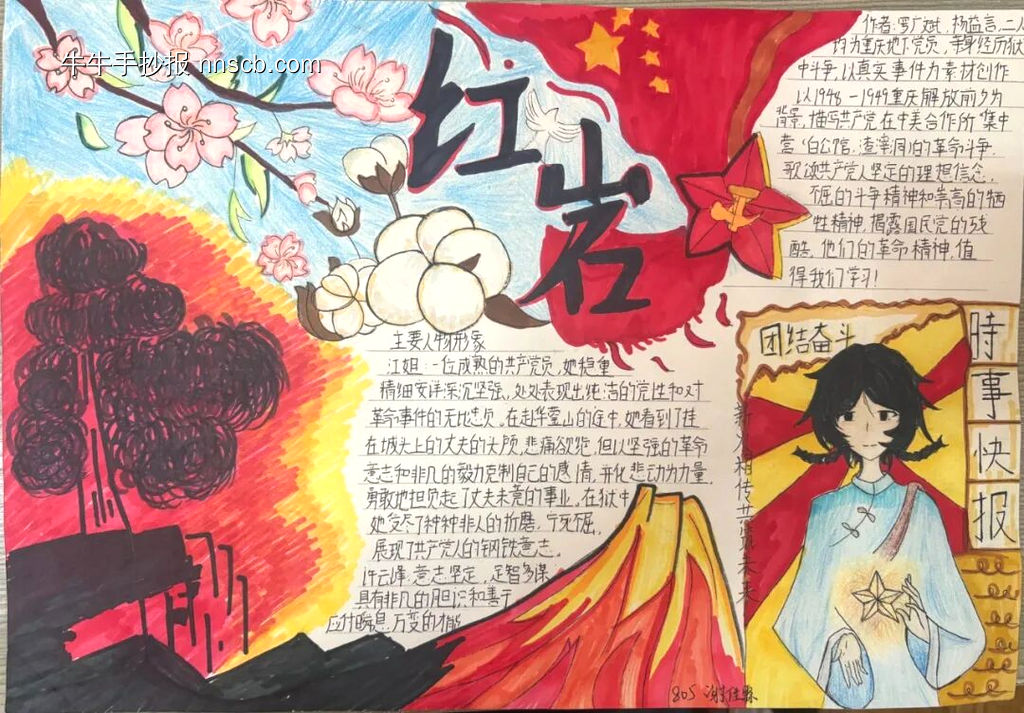 牛牛手抄报 nnscb.com
红岩
作者:罗广斌,杨益言,二人
均为重庆地下党员,亲身经历狱
中斗争,以真实事件为素材创作
以1948-1949重庆解放前夕为
背景,描写共产党在中美合作所集中
营白公馆,渣滓洞的革命斗争
歌颂共产党人坚定的理想信念,
不屈的斗争精神和崇高的牺
牲精神,揭露国民党的残
酷,他们的革命精神,值
得我们学习!
主要人物形象
江姐:一位成熟的共产党员,她稳重
精细安详深沉坚强,处处表现出纯洁的党性和对
革命事件的无比忠贞。在赴华蓥山的途中,她看到了挂
在城头上的丈夫的头颅,悲痛欲绝,但以坚强的革命
意志和非凡的毅力克制自己的感情,并化悲动为力量,
勇敢地担负起了丈夫未竟的事业,在狱中
她受尽了种种非人的折磨,宁死不屈,
展现了共产党人的钢铁意志。
许云峰:意志坚定,足智多谋
具有非凡的胆识和善于
应付瞬息万变的才能
团结奋斗
新火相传共筑未来
時事快报
805 谢佳